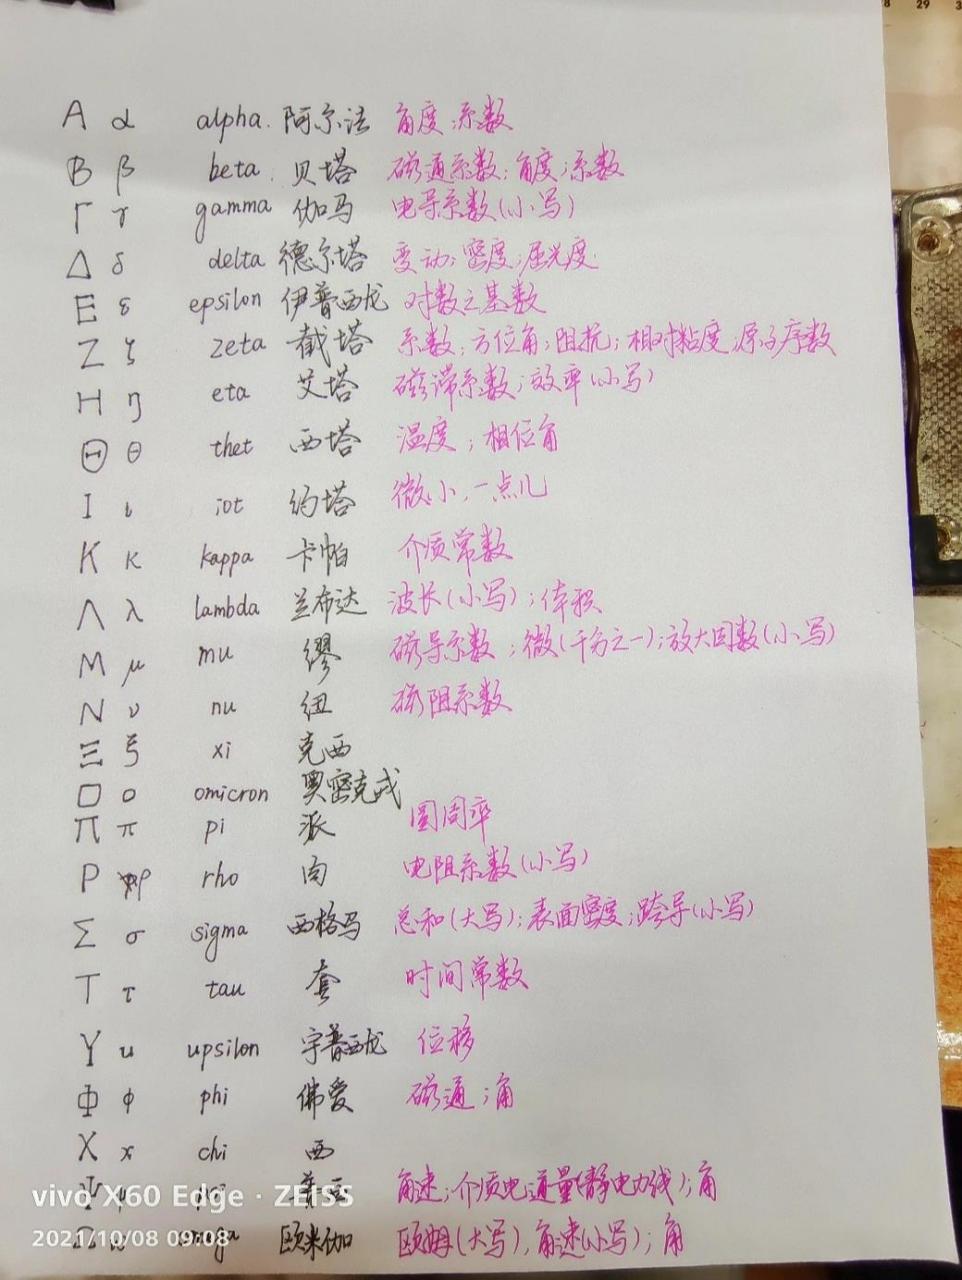 28 29 3
Α α alpha. 阿尔法 角度;系数
Β β beta. 贝塔 磁通系数;角度;系数
Γ γ gamma 伽马 电导系数(小写)
Δ δ delta 德尔塔 变动;密度;屈光度
Ε ε epsilon 伊普西龙 对数之基数
Ζ ζ zeta 截塔 系数;方位角;阻抗;相对粘度;原子序数
Η η eta 艾塔 磁滞系数;效率(小写)
Θ θ thet 西塔 温度;相位角
Ι ι iot 约塔 微小,一点儿
Κ κ kappa 卡帕 介质常数
Λ λ lambda 兰布达 波长(小写);体积
Μ μ mu 缪 磁导系数;微(千分之一);放大因数(小写)
Ν ν nu 纽 磁阻系数
Ξ ξ xi 克西
Ο ο omicron 奥密克戎
Π π pi 派 圆周率
Ρ ρ rho 肉 电阻系数(小写)
Σ σ sigma 西格马 总和(大写);表面密度;跨导(小写)
Τ τ tau 套 时间常数
Υ υ upsilon 宇普西龙 位移
Φ φ phi 佛爱 磁通;角
Χ χ chi 西
Ψ ψ 普西 角速;介质电通量(静电力线);角
vivo X60 Edge · ZEISS
Ω 欧米伽 欧姆(大写),角速(小写);角
2021/10/08 09:08